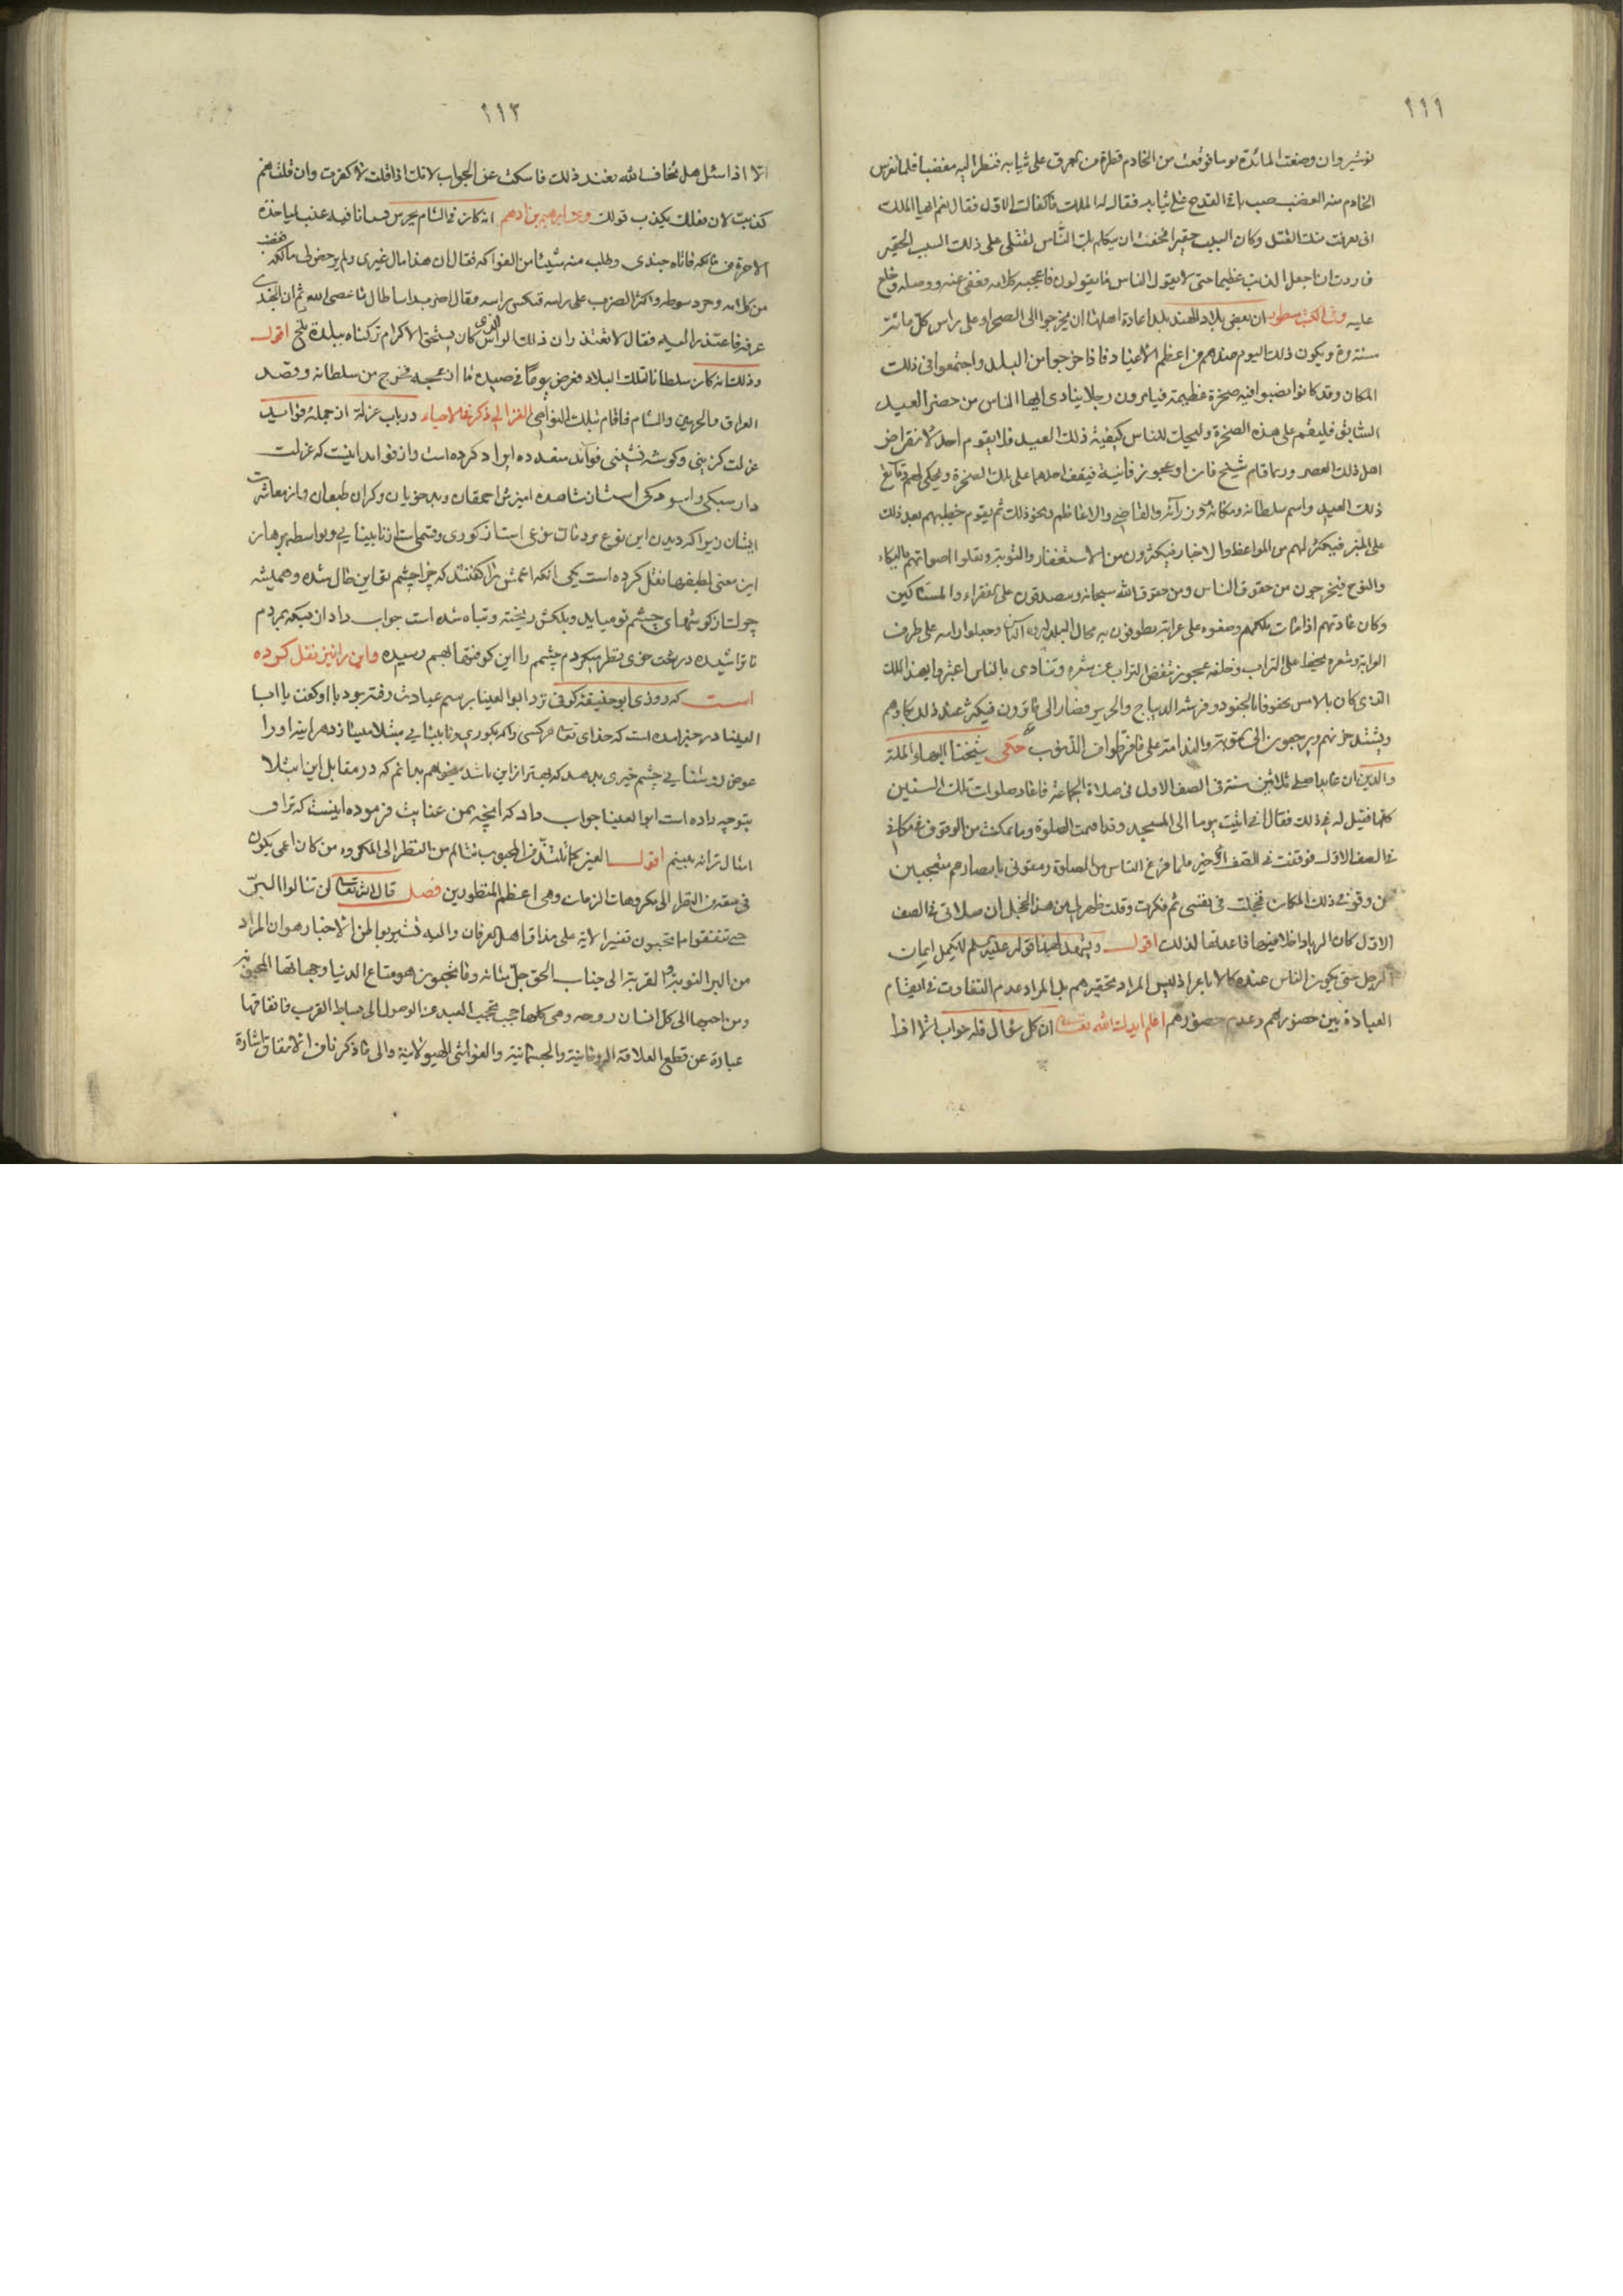 ١١١
نوشيروان وضعت المائدة يوما فوقعت من الخادم قطرة من المرق على ثيابه فنظر اليه مغضبا فلما تفرس
الخادم منه الغضب صب باقي القدح على ثيابه فقال له الملك ما كفاك الاول فقال نعم ايها الملك
انى عرفت منك القتل وكان السبب حقيرا فخفت ان يتكلم بك الناس لقتلى على ذلك السبب الحقير
فاردت ان اجعل الذنب عظيما حتى لا يقول الناس ما يقولون فاعجبه كلامه فعفى عنه ووصله وخلع
عليه وفى الكتب مسطور ان بعض بلاد الهند بلد اعادة اهلها ان يخرجوا الى الصحراء على راس كل مائة
سنة مرة ويكون ذلك اليوم عندهم من اعظم الاعياد فاذا خرجوا من البلد واجتمعوا فى ذلك
المكان وقد كانوا نصبوا فيه صخرة عظيمة فيامرون رجلا ينادى ايها الناس من حضر العيد
السابق فليقم على هذه الصخرة وليحك للناس كيفية ذلك العيد فلا يقوم احد لانقراض
اهل ذلك العصر وربما قام شيخ فان او عجوز فانية فيقف احدهما على تلك الصخرة ويحكى لهم وقايع
ذلك العيد واسم سلطانه ومكانه ووزرائه والقاضى والاعاظم ونحو ذلك ثم يقوم خطيبهم بعد ذلك
على المنبر فيكثر لهم من المواعظ والاخبار فيكثرون من الاستغفار والتوبة وتعلوا اصواتهم بالبكاء
والنوح فيخرجون من حقوق الناس ومن حقوق الله سبحانه ويصدقون على الفقراء والمساكين
وكان عادتهم اذا مات ملكهم وضعوه على عرابة يطوفون به محال البلد وجعلوا راسه على طرف
العرابة وشعره يخط على التراب وخلفه عجوز تنفض التراب عن شعره وتنادى يا الناس اعتبروا بهذا الملك
الذى كان بالامس محفوفا بالجنود وفرشه الديباج والحرير وصار الى ما ترون فيكثر عند ذلك بكاؤهم
ويشتد حزنهم ويرجعون الى التوبة والندامة على ما فرطوا من الذنوب حكى شيخنا البهاء الملة
والدين ان عابدا صلى ثلاثين سنة فى الصف الاول فى صلاة الجماعة فاعاد صلوات تلك السنين
كلها فقيل له فى ذلك فقال انى اتيت يوما الى المسجد وقد اقيمت الصلوة وما تمكنت من الوقوف فى مكانى
فى الصف الاول فوقفت فى الصف الاخير فلما فرغ الناس من الصلوة رمقونى بابصارهم متعجبين
من وقوفى ذلك المكان فخجلت فى نفسى ثم فكرت وقلت ظهر لى من هذا الخجل ان صلاتى فى الصف
الاول كان الرياء داخلا فيها فاعدتها لذلك اقول ويشهد لهذا قوله عليه السلم لا يكمل ايمان
الرجل حتى يكون الناس عنده كالاباعر اذ ليس المراد تحقيرهم بل المراد عدم التفاوت فى القيام
العبادة بين حضورهم وعدم حضورهم اعلم ايدك الله تعالى ان كل سؤال فله جواب الا اذا
١١٢
الا اذا سئل هل تخاف الله فعند ذلك فاسكت عن الجواب لانك اذا قلت لا كفرت وان قلت نعم
كذبت لان فعلك يكذب قولك وعن ابرهيم بن ادهم انه كان فى الشام يحرس بستانا فيه عنب لياخذ
الاجرة من مالكه فاتاه جندى وطلب منه شيئا من الفواكه فقال ان هذا مال غيرى ولم يرخص لى مالكه فغضب
من كلامه وجرد سوطه واكثر الضرب على راسه فنكس راسه وقال اضرب راسا طال ما عصى الله ثم ان الجندى
عرفه فاعتذر اليه فقال لا تعتذر ان ذلك الراس الذى كان يستحق الاكرام تركناه ببلدة بلخ اقول
وذلك انه كان سلطانا لتلك البلاد فعرض يوما فى صيده ما ازعجه فخرج من سلطانه وقصد
العراق والحرمين والشام فاقام بتلك النواحى الغزالى ذكر فى الاحياء در باب عزلة از جمله فوايد
عزلت كزينى وكوشه نشينى فوائد متعدده ايراد كرده است واز فوايد اينست كه عزلت
دار سبكى واسودكى است از مشاهده اميزش احمقان وبدخويان وكران طبعان واز معاشرت
ايشان زيرا كه ديدن اين نوع مردمان نوعى است از كورى وقسمى است از نابينايى وبواسطه برهان
اين معنى لطيفها نقل كرده است يكى انكه اعمش را گفتند كه چرا چشم تو اين حال شده وهميشه
چرك از گوشهاى چشم تو ميايد وپلكش ريخته وتباه شده است جواب داد از بسكه بمردم
نا تراشيده درشت خوى نظر ميكردم چشم را اين كوفتها بهم رسيده واين را نيز نقل كرده
است كه روزى ابو حنيفه كوفى نزد ابو العينا برسم عيادت رفته بود با او گفت يا ابا
العينا در خبر امده است كه خداى تعالى هر كسى را كه بكورى ونابينايى مبتلا ميسازد هر اينه او را
عوض روشنايى چشم خيرى بدهد كه بهتر از اين باشد ميخواهم بدانم كه در مقابل اين ابتلا
بتو چه داده است ابو العينا جواب داد كه انچه بمن عنايت فرموده اينست كه ترا و
امثال ترا نه بينم اقول العين كما تلتذ من المحبوب تتالم من النظر الى المكروه ومن كان اعمى يكون
فى سعة من النظر الى مكروهات الزمان وهى اعظم المنظورين فصل قال الله تعالى لن تنالوا البر
حتى تنفقوا مما تحبون تفسير الاية على مذاق اهل العرفان واليه تشير بواطن الاخبار هو ان المراد
من البر التوبة والقربة الى جناب الحق جل شانه وما تحبون هو متاع الدنيا وجهاتها المحبوبة
ومن احبها الى كل انسان روحه وهى كلها حجب تحجب العبد عن الوصول الى بساط القرب فانفاقها
عبارة عن قطع العلاقة الروحانية والجسمانية والغواشى الهيولانية والى ما ذكرنا من الانفاق اشارة